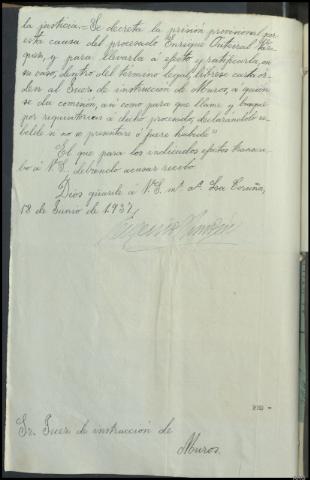 la justicia.= Se decreta la prisión provisional por
esta causa del procesado Enrique Outeiral
y para llevarla á efecto y ratificarla, en
su caso, dentro del termino legal, líbrese carta or-
den al Juez de instrucción de Muros, á quien
se da comisión, así como para que llame y busque
por requisitorias á dicho procesado, declarándolo re-
belde si no se presentare ó fuere habido"
El que para los indicados efectos transcri-
bo á V.S. debiendo acusar recibo.
Dios guarde á V.S. ms. as. La Coruña,
18 de Junio de 1937.
Sr. Juez de instrucción de
Muros.